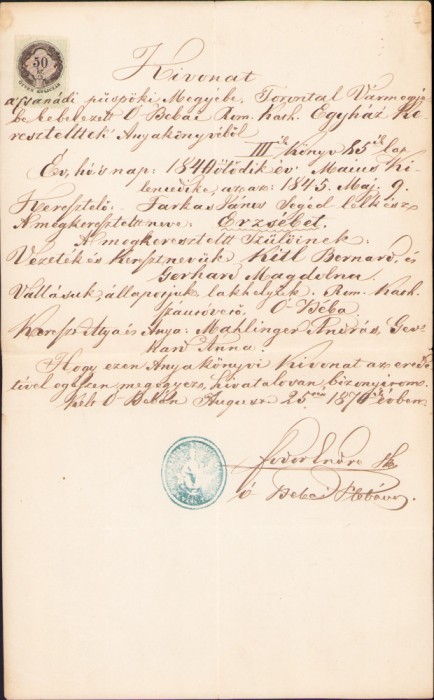 50
kr.
Kivonat
a Csanádi püspöki Megyébe, Torontál Vármegyé
be kebelezett O Bébai Rom. Kath. Egyház Ke
reszteltek Anyakönyvéből
III ik Könyv 85 ik lap
Év, hó s nap: 184 ötödik év Maius Ki
lencedike, azaz: 1845. Máj. 9.
Keresztelő: Farkas János Segéd lelkész
A megkeresztelt neve: Erzsébet.
A megkeresztelt Szüleinek:
Vezeték és keresztnevük Kitl Bernard, és
Gerhard Magdolna
Vallásuk állapotjuk lakhelyük Rom. Kath.
O-Béba
Kereszt Atya és Anya: Mahlinger András, Ger
hard Anna.
Hogy ezen Anyakönyvi Kivonat az erede
tivel egészen megegyez, hivatalosan bizonyítom.
Kelt O Bebán August. 25 én 187 évben.
Fodor Endre
ó Bebai Plébános